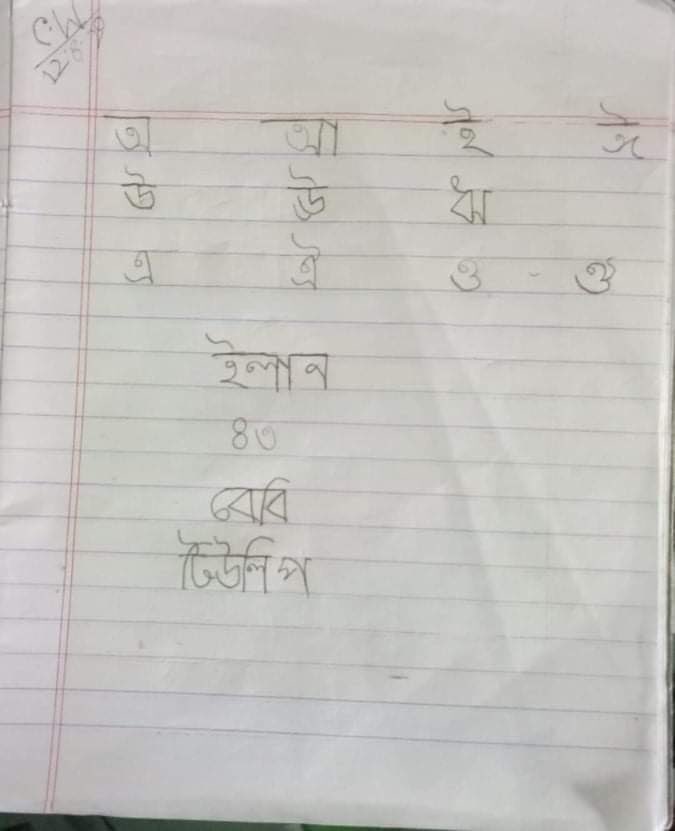 অ আ ই ঈ
উ ঊ ঋ
এ ঐ ও - ঔ
ইলান
৪৩
বেবি
টিউলিপ